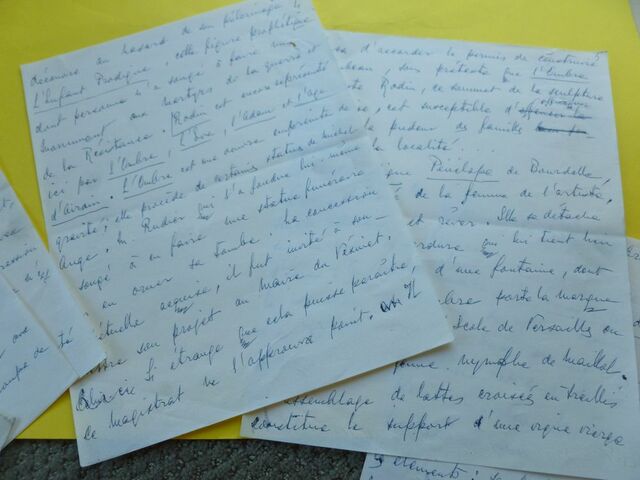 découvre au hasard de son pèlerinage là
L'Enfant Prodigue, cette figure prophétique
dont personne n'a songé à faire un
monument aux martyrs de la guerre et
de la Résistance. Rodin est encore représenté
ici par L'Ombre, l'Eve, l'Adam et l'Age
d'Airain. L'Ombre est une œuvre empreinte de
gravité; elle procède de certaines statues de Michel
Ange. M. Rudier qui l'a fondue lui-même
songé à en faire une statue funéraire
en orner sa tombe. La concession
étuelle acquise, il fut invité à sou-
ttre son projet au maire du Vésinet.
si étrange que cela puisse paraître,
ce magistrat ne l'approuva point. Il
sa d'accorder le permis de construire
sous prétexte que l'Ombre
Rodin, ce sommet de la sculpture
est susceptible d'offusquer
la pudeur des familles
la localité.
que Pénélope de Bourdelle,
de la femme de l'artiste,
et rêver. Elle se détache
verdure qui lui tient lieu
d'une fontaine, dont
bre porte la marque
école de Versailles ou
nymphe de Maillol.
assemblage de lattes croisées en treillis
constitue le support d'une vigne vierge
éléments :